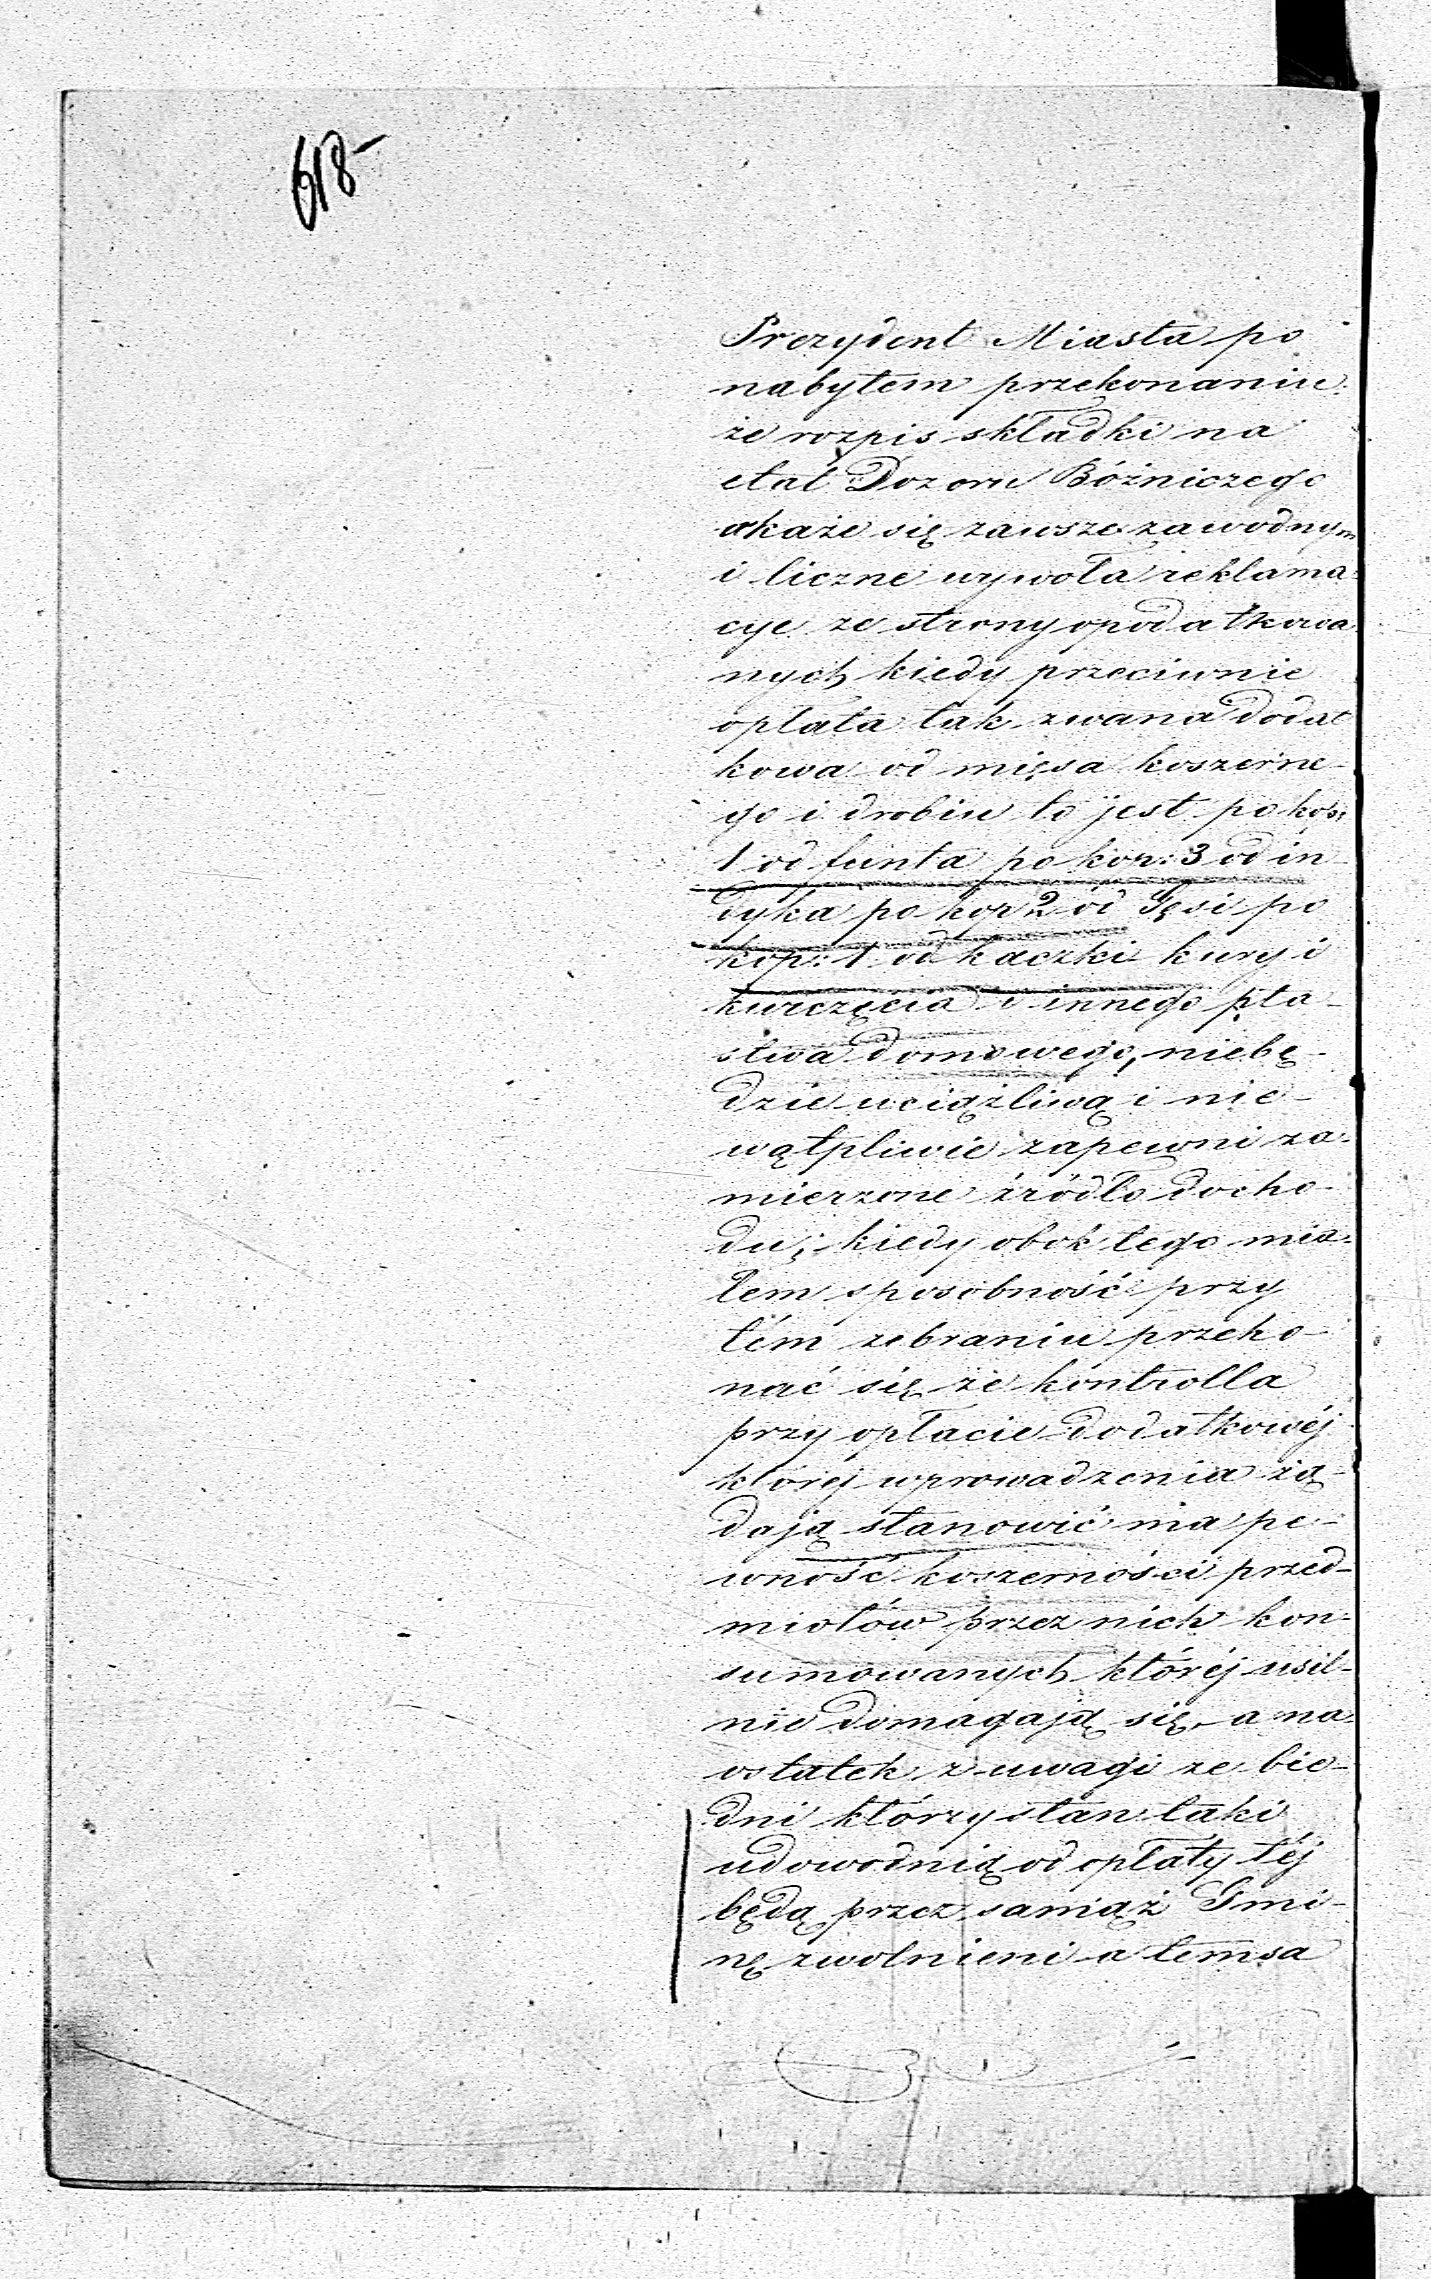 618
Prezydent Miasta po
nabytem przekonaniu
że rozpis składki na
etat Dozoru Bóźniczego
okaże się zawsze zawodnym
i liczne wywoła reklama-
cye ze strony opodatkowa
nych kiedy przeciwnie
opłata tak zwana dodat
kowa od mięsa koszerne-
go i drobiu to jest po kop:
1 od funta po kop: 3 od in
dyka po kop 2 od Gęsi po
kop: 1 od kaczki kury i
kurczęcia i innego pta-
stwa domowego, niebę-
dzie uciążliwą i nie-
wątpliwie zapewni za-
mierzone źródło docho-
du; kiedy obok tego mia-
łem sposobność przy
tém zebraniu przeko-
nać się że kontrolla
przy opłacie dodatkowéj
któréj wprowadzenia żą-
dają stanowić ma pe-
wność koszerności przed-
miotów przez nich kon-
sumowanych któréj usil-
nie domagają się, a na
ostatek z uwagi że bie-
dni którzy stan taki
udowodnią od opłaty téj
będą przez samąż Gmi-
nę zwolnieni a temsa